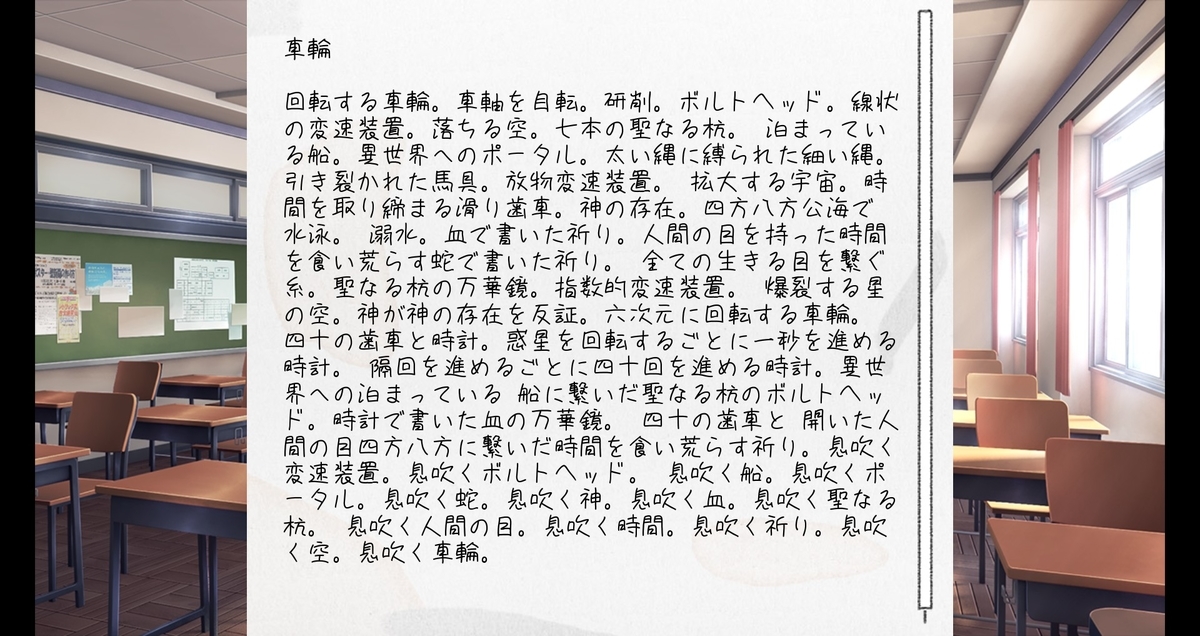 車輪
回転する車輪。車軸を自転。研削。ボルトヘッド。線状
の変速装置。落ちる空。七本の聖なる杭。 泊まってい
る船。異世界へのポータル。太い縄に縛られた細い縄。
引き裂かれた馬具。放物変速装置。 拡大する宇宙。時
間を取り締まる滑り歯車。神の存在。四方八方公海で
水泳。 溺水。血で書いた祈り。人間の目を持った時間
を食い荒らす蛇で書いた祈り。 全ての生きる目を繋ぐ
糸。聖なる杭の万華鏡。指数的変速装置。 爆裂する星
の空。神が神の存在を反証。六次元に回転する車輪。
四十の歯車と時計。惑星を回転するごとに一秒を進める
時計。 隔回を進めるごとに四十回を進める時計。異世
界への泊まっている 船に繋いだ聖なる杭のボルトヘッ
ド。時計で書いた血の万華鏡。 四十の歯車と 開いた人
間の目四方八方に繋いだ時間を食い荒らす祈り。息吹く
変速装置。息吹くボルトヘッド。 息吹く船。息吹くポ
ータル。息吹く蛇。息吹く神。息吹く血。息吹く聖なる
杭。 息吹く人間の目。息吹く時間。息吹く祈り。息吹
く空。息吹く車輪。